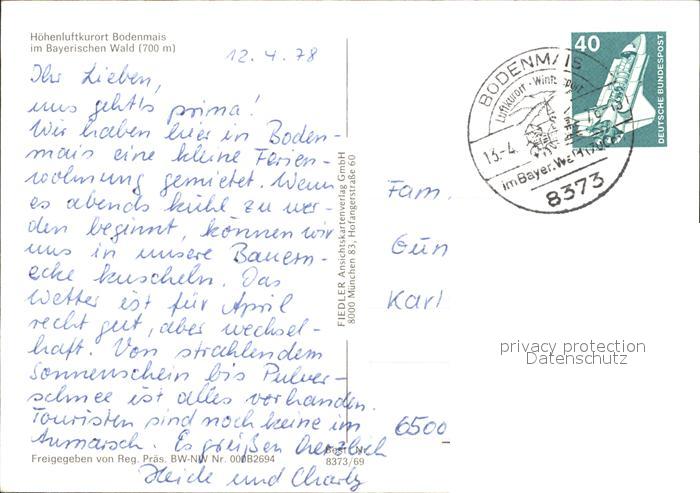 Höhenluftkurort Bodenmais
im Bayerischen Wald (700 m)
12.4.78
Ihr Lieben,
uns geht's prima!
Wir haben hier in Boden-
mais eine kleine Ferien-
wohnung gemietet. Wenn
es abends kühl zu wer-
den beginnt, können wir
uns in unsere Bauern-
ecke kuscheln. Das
Wetter ist für April
recht gut, aber wechsel-
haft. Von strahlendem
Sonnenschein bis Pulver-
schnee ist alles vorhanden.
Touristen sind noch keine im
Anmarsch. Es grüßen herzlich
Heide und Charly
Freigegeben von Reg. Präs. BW-NW Nr. 000B2694
Best. Nr.
8373/69
FIEDLER Ansichtskartenverlag GmbH
8000 München 83, Hofangerstraße 60
40
DEUTSCHE BUNDESPOST
BODENMAIS
Luftkurort - Wintersport
13.-4.
im Bayer. Wald
8373
Fam.
Gün
Karl
6500
privacy protection
Datenschutz